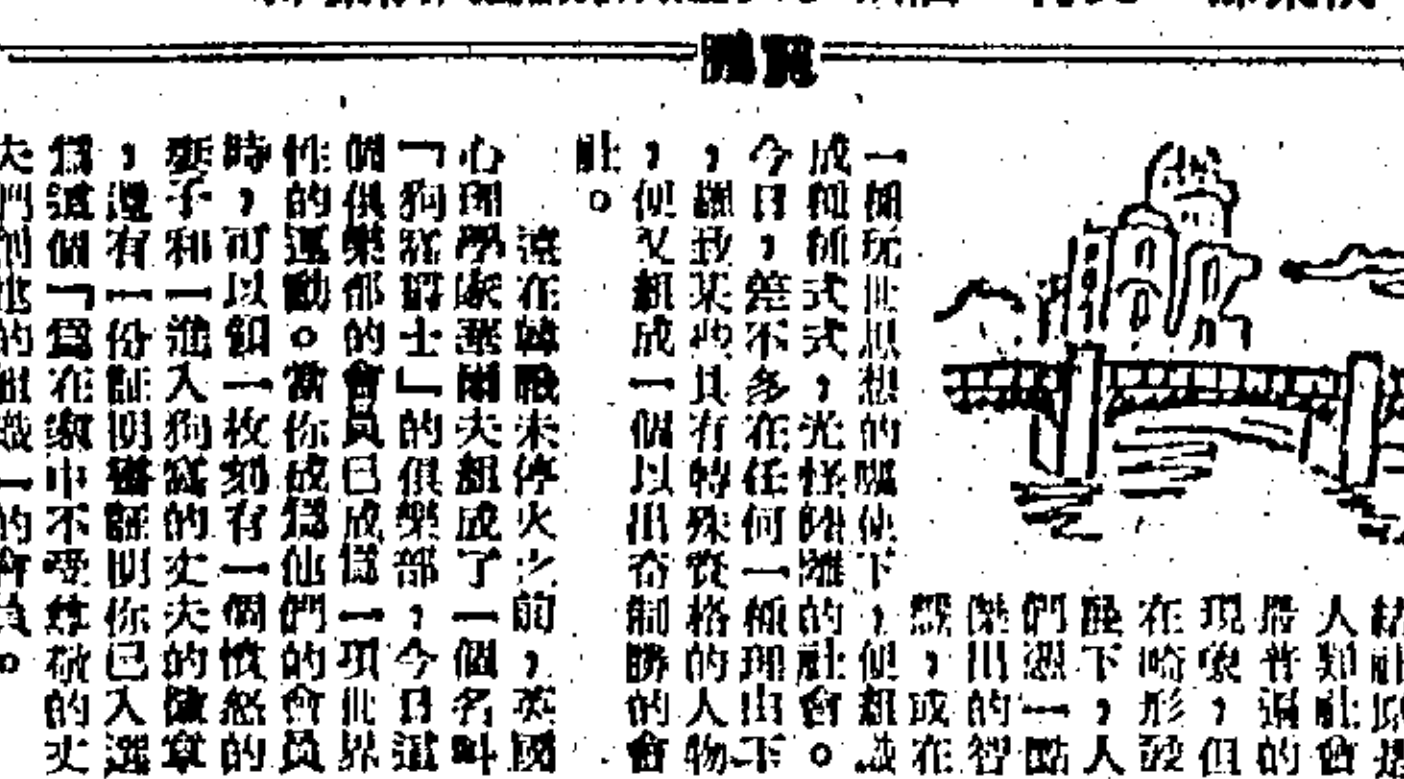 結社原是
人類社會
最普遍的
現象,但
在畸形發
展下,人
們憑一點
傑出的智
慧,或在
一種玩世思想的驅使下,便組識
成種種式式,光怪陸離的社會。
今日,差不多在任何一種理由下
,某些具有特殊資格的人物
,便又組成一個以出奇制勝的會
社。
遠在韓戰未停火之前,英國
心理學家萊爾夫組成了一個名叫
「狗窩爵士」的俱樂部,今日這
個俱樂部的會員已成爲一項世界
性的運動。當你成爲他們的會員
時,可以領一枚刻有一個憤怒的
妻子和一進入狗窩的丈夫的徽章
,還有一份証明書証明你已入選
爲這個「爲在家中不受尊敬的丈
夫們創造的組織」的會員。